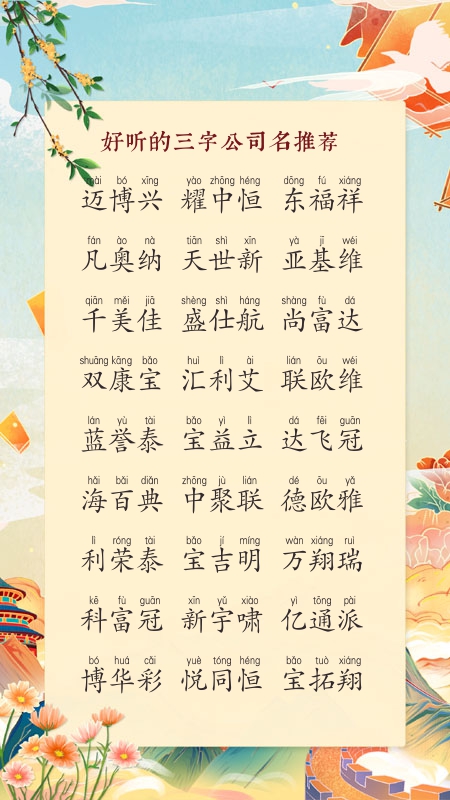 好听的三字公司名推荐
mài bó xīng yào zhōng héng dōng fú xiáng
迈博兴 耀中恒 东福祥
fán ào nà tiān shì xīn yà jī wéi
凡奥纳 天世新 亚基维
qiān měi jiā shèng shì háng shàng fù dá
千美佳 盛仕航 尚富达
shuāng kāng bǎo huì lì ài lián ōu wéi
双康宝 汇利艾 联欧维
lán yù tài bǎo yì lì dá fēi guān
蓝誉泰 宝益立 达飞冠
hǎi bǎi diǎn zhōng jù lián dé ōu yǎ
海百典 中聚联 德欧雅
lì róng tài bǎo jí míng wàn xiáng ruì
利荣泰 宝吉明 万翔瑞
kē fù guān xīn yǔ xiào yì tōng pài
科富冠 新宇啸 亿通派
bó huá cǎi yuè tóng héng bǎo tuò xiáng
博华彩 悦同恒 宝拓翔